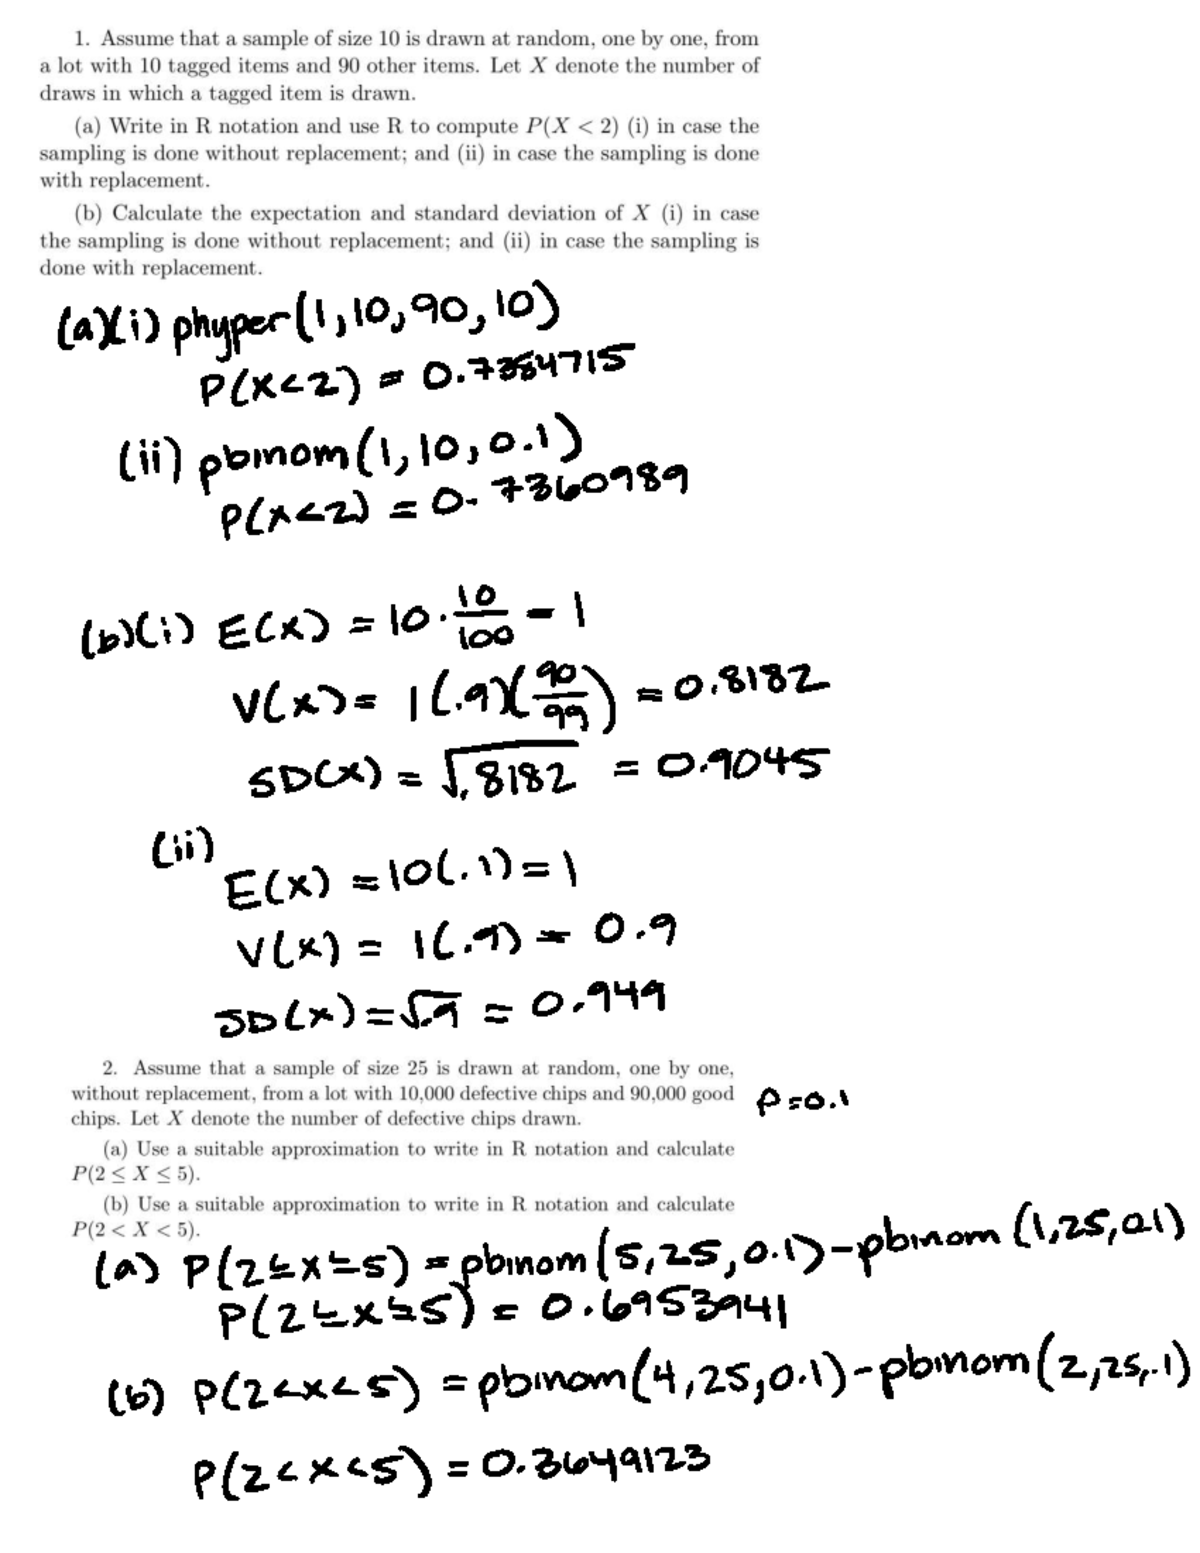 1. Assume that a sample of size 10 is drawn at random, one by one, from
a lot with 10 tagged items and 90 other items. Let X denote the number of
draws in which a tagged item is drawn.
(a) Write in R notation and use R to compute P(X < 2) (i) in case the
sampling is done without replacement; and (ii) in case the sampling is done
with replacement.
(b) Calculate the expectation and standard deviation of X (i) in case
the sampling is done without replacement; and (ii) in case the sampling is
done with replacement.
(a)(i) phyper(1,10,90,10)
P(X<2) = 0.7384715
(ii) pbinom(1,10,0.1)
P(X<2) = 0.7360989
(b)(i) E(X) = 10·10/100 = 1
V(X) = 1(.9)(90/99) = 0.8182
SD(X) = √.8182 = 0.9045
(ii)
E(X) = 10(.1) = 1
V(X) = 1(.9) = 0.9
SD(X) = √.9 = 0.949
2. Assume that a sample of size 25 is drawn at random, one by one,
without replacement, from a lot with 10,000 defective chips and 90,000 good
chips. Let X denote the number of defective chips drawn.
p=0.1
(a) Use a suitable approximation to write in R notation and calculate
P(2 ≤ X ≤ 5).
(b) Use a suitable approximation to write in R notation and calculate
P(2 < X < 5).
(a) P(2≤X≤5) = pbinom(5,25,0.1)-pbinom(1,25,0.1)
P(2≤X≤5) = 0.6953941
(b) P(2<X<5) = pbinom(4,25,0.1)-pbinom(2,25,.1)
P(2<X<5) = 0.3649123